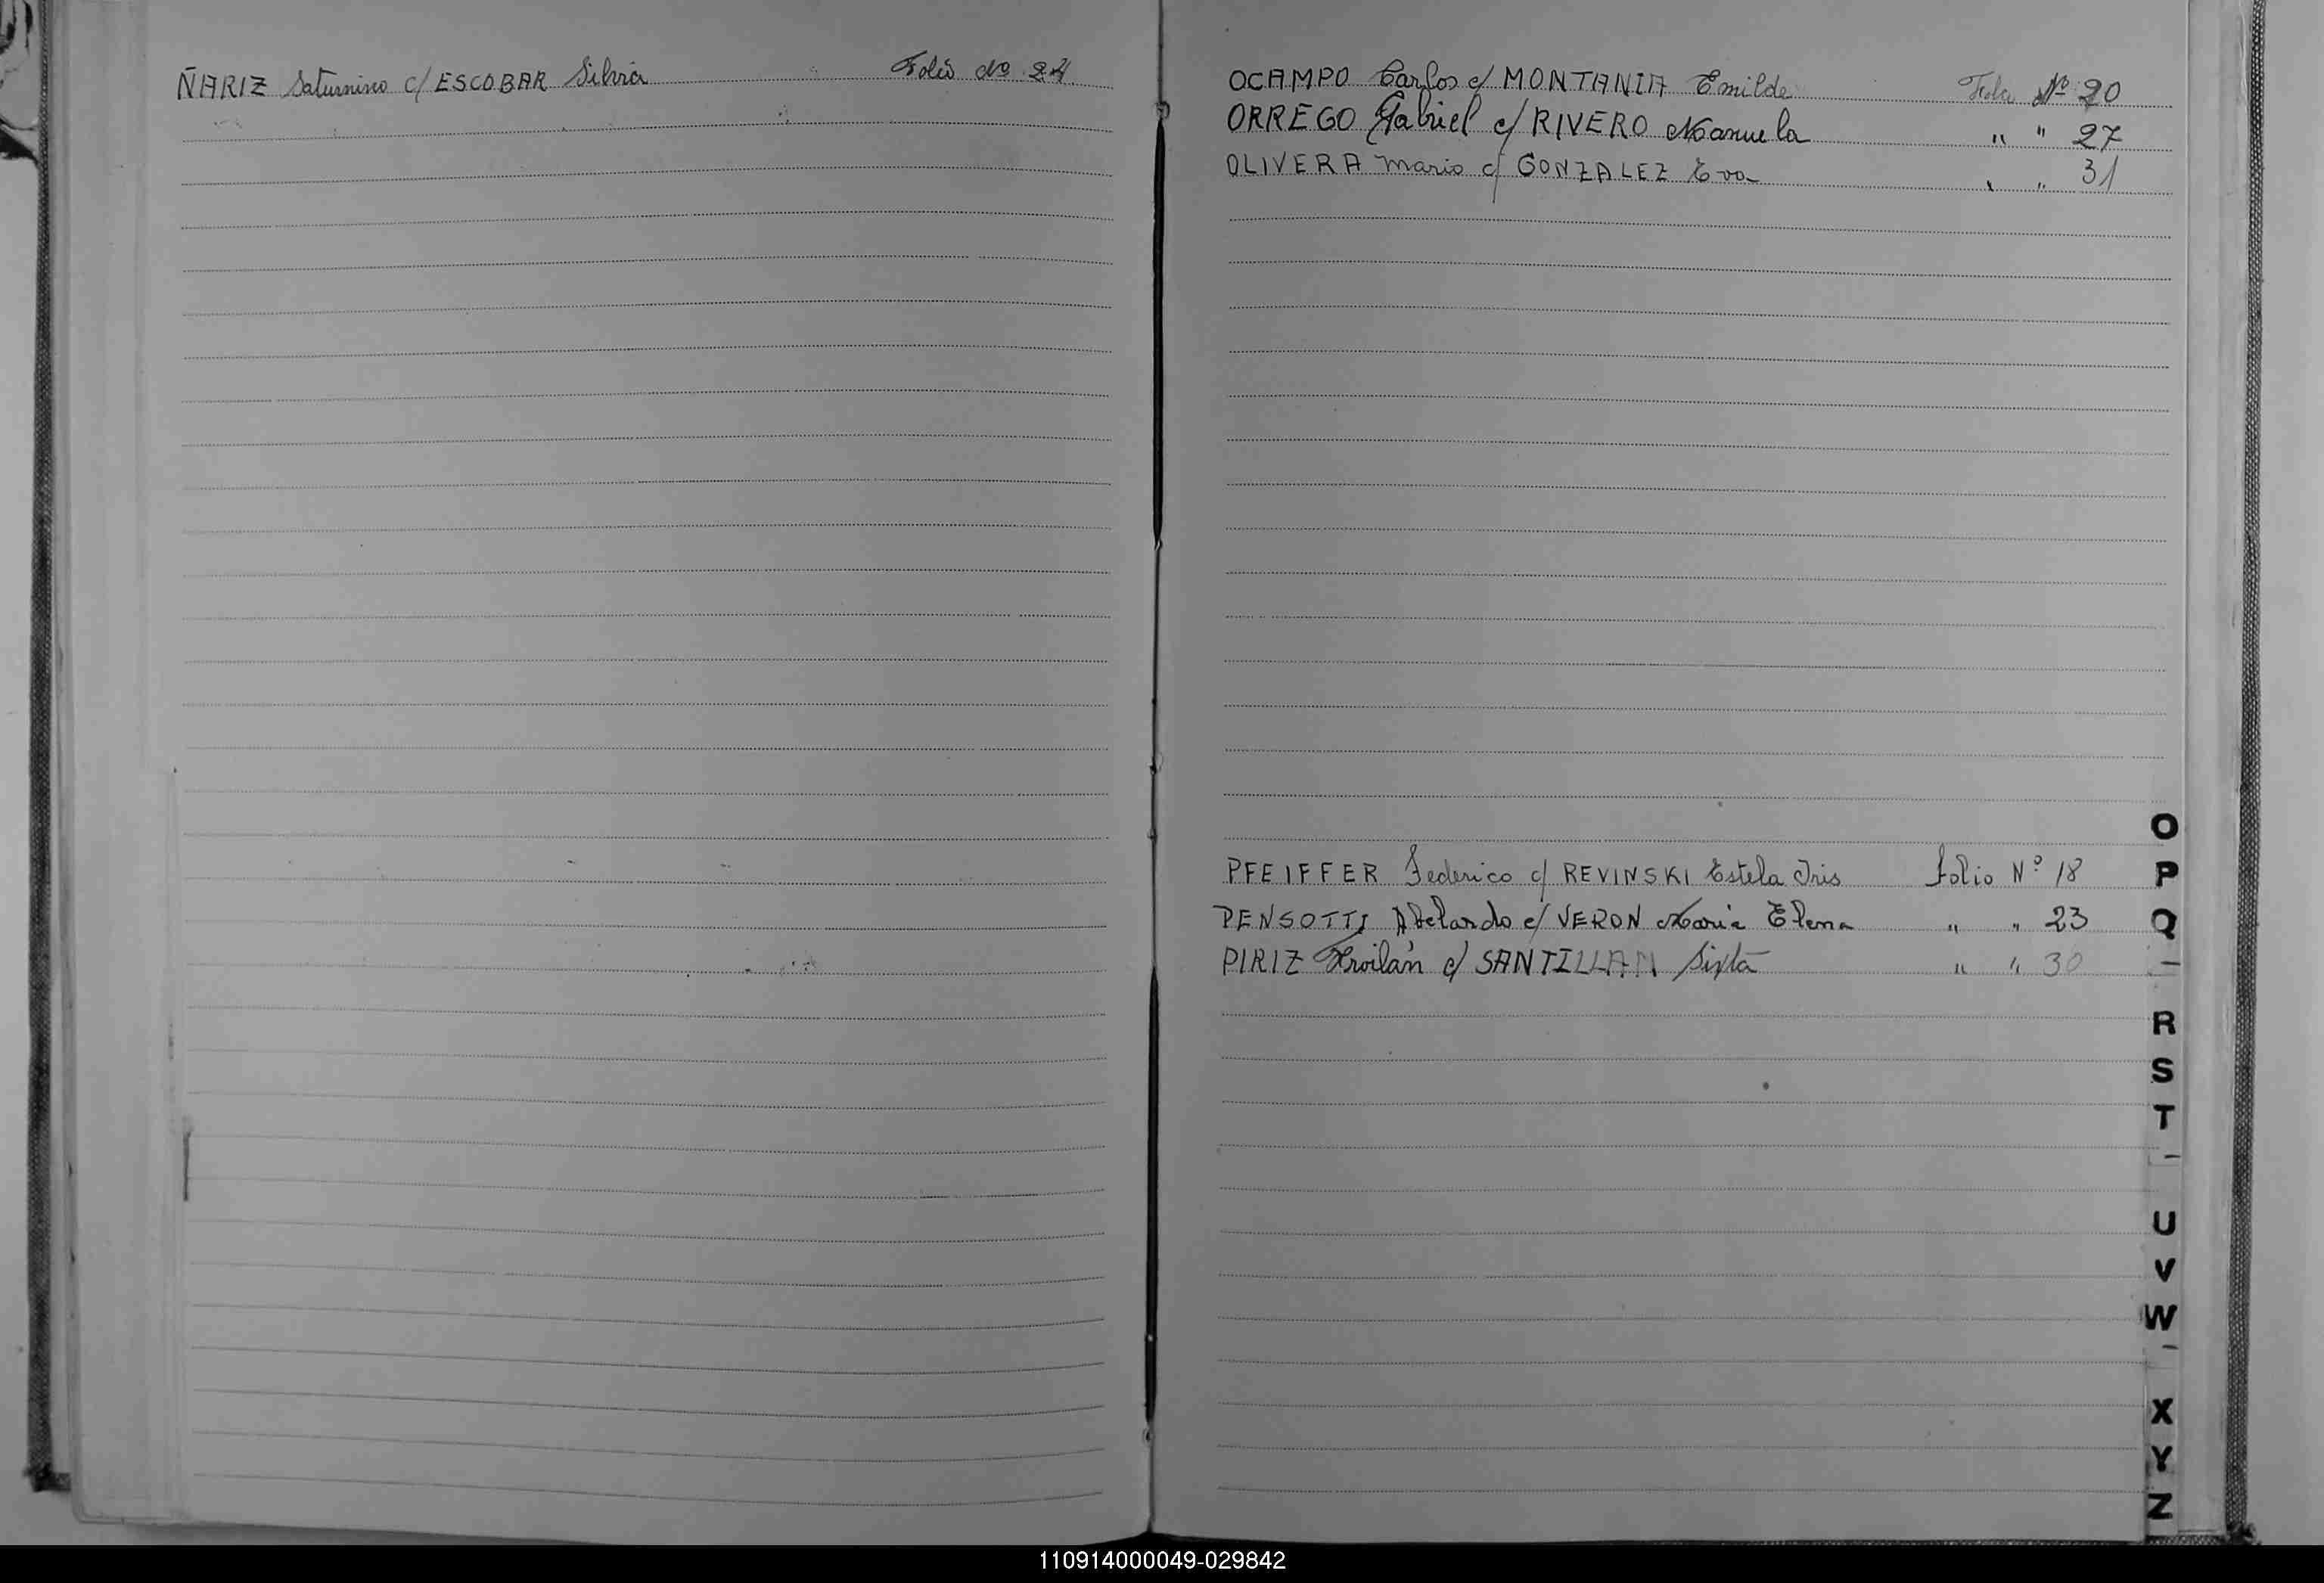 ÑARIZ Saturnino c/ ESCOBAR Silvia Folio Nº 24
OCAMPO Carlos c/ MONTANIA Emilde Folio Nº 20
ORREGO Gabriel c/ RIVERO Manuela " " 27
OLIVERA Mario c/ GONZALEZ Eva " " 31
PFEIFFER Federico c/ REVINSKI Estela Iris folio Nº 18
PENSOTTI Abelardo c/ VERON Maria Elena " " 23
PIRIZ Froilán c/ SANTILLAN Sixta " " 30
O
P
Q
R
S
T
U
V
W
X
Y
Z
110914000049-029842